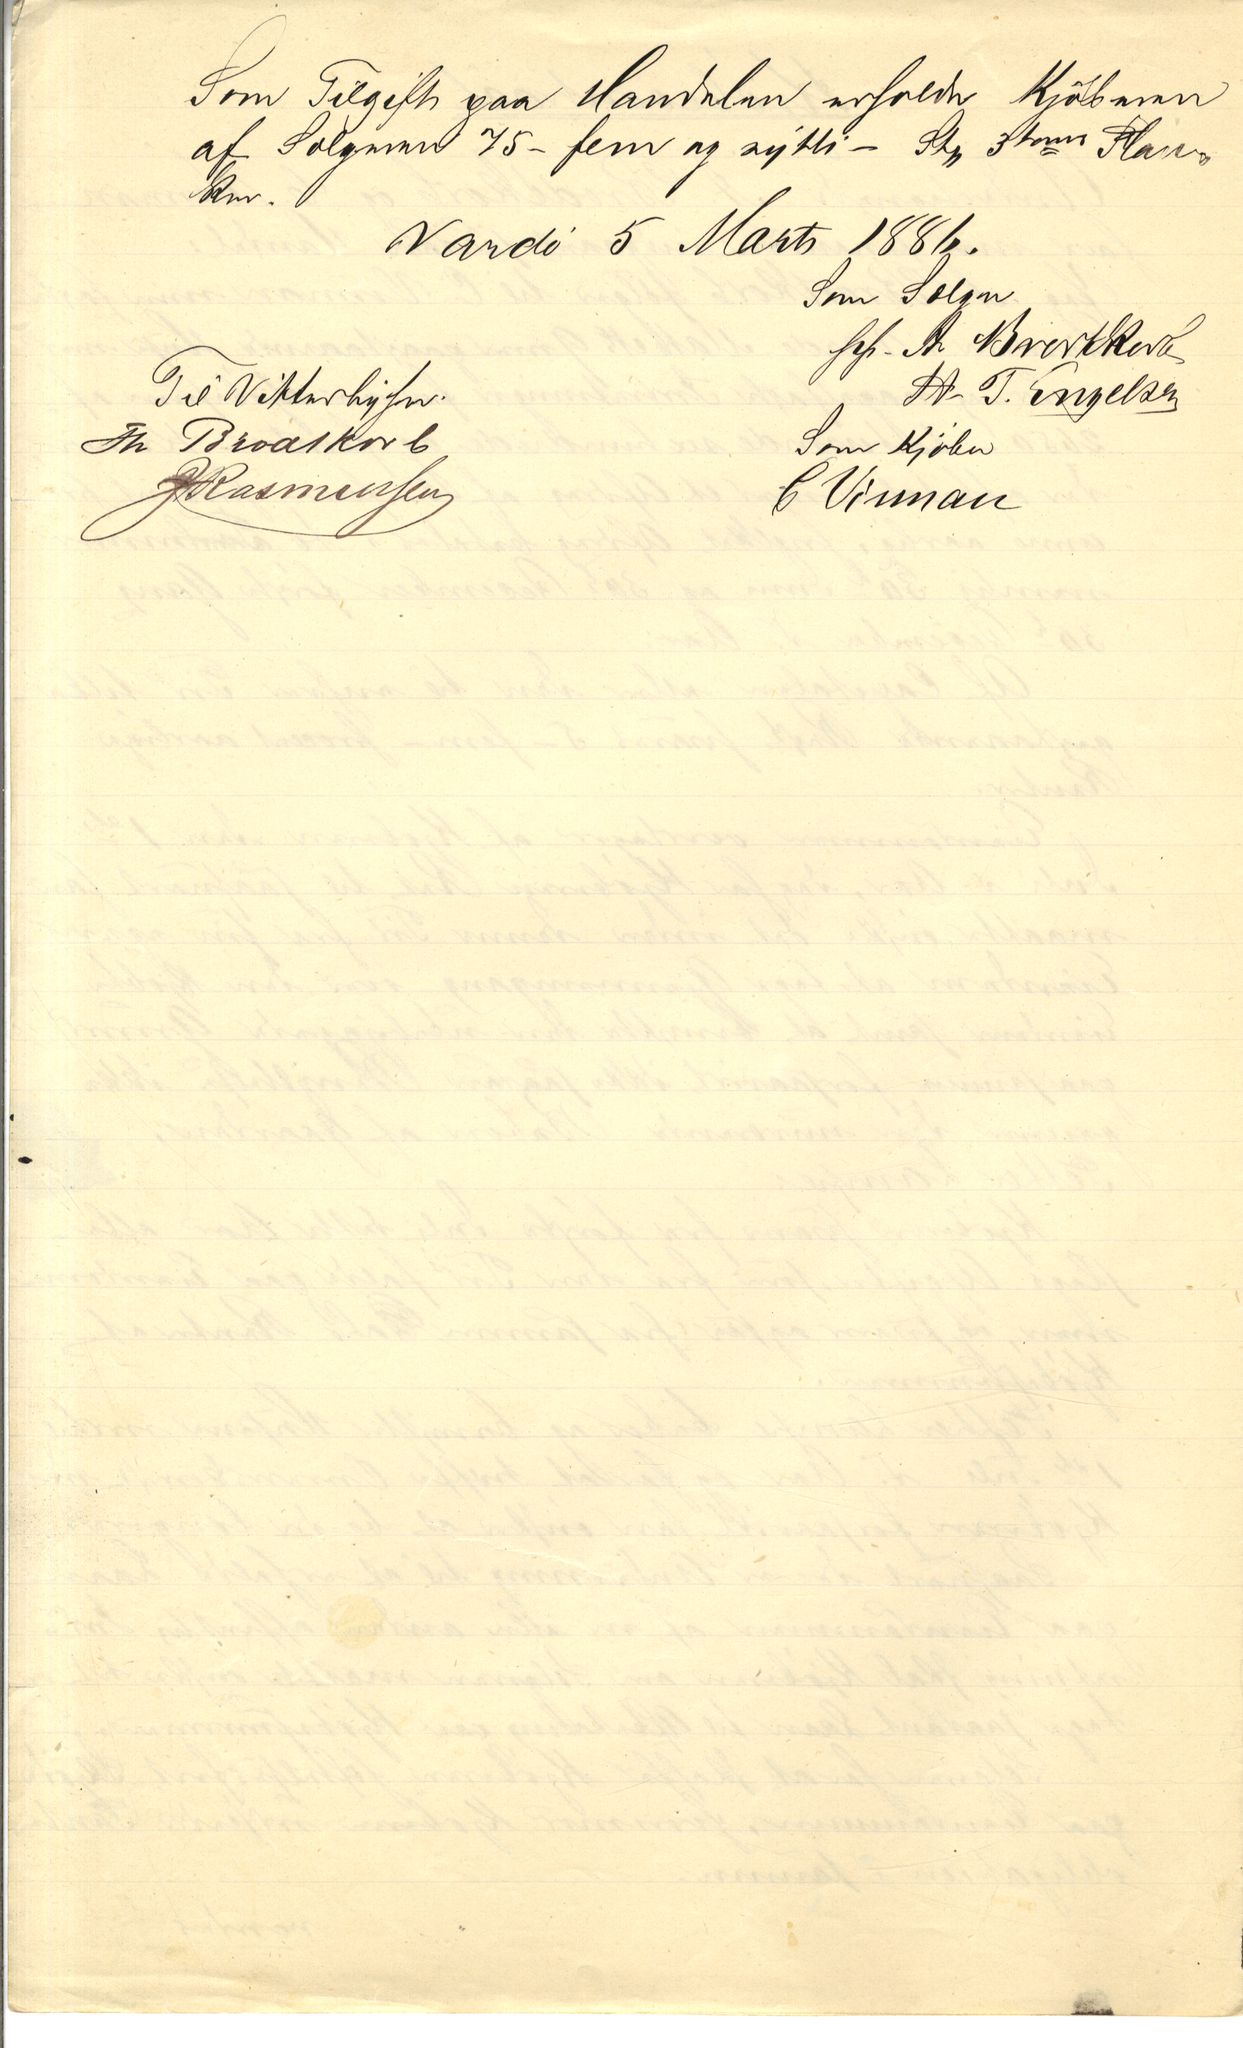 Som Tilgift paa Handelen erholder Kjöberen
af Sælgeren 75 - fem og sytti - Stk 3 toms Plan-
ker.
Vardö 5 Marts 1886.
Som Sælger
A Brodtkorb
A. T. Engelsen
Til Vitterlighed.
Th Brodtkorb
Rasmussen
Som Kjöber
C Vinnan